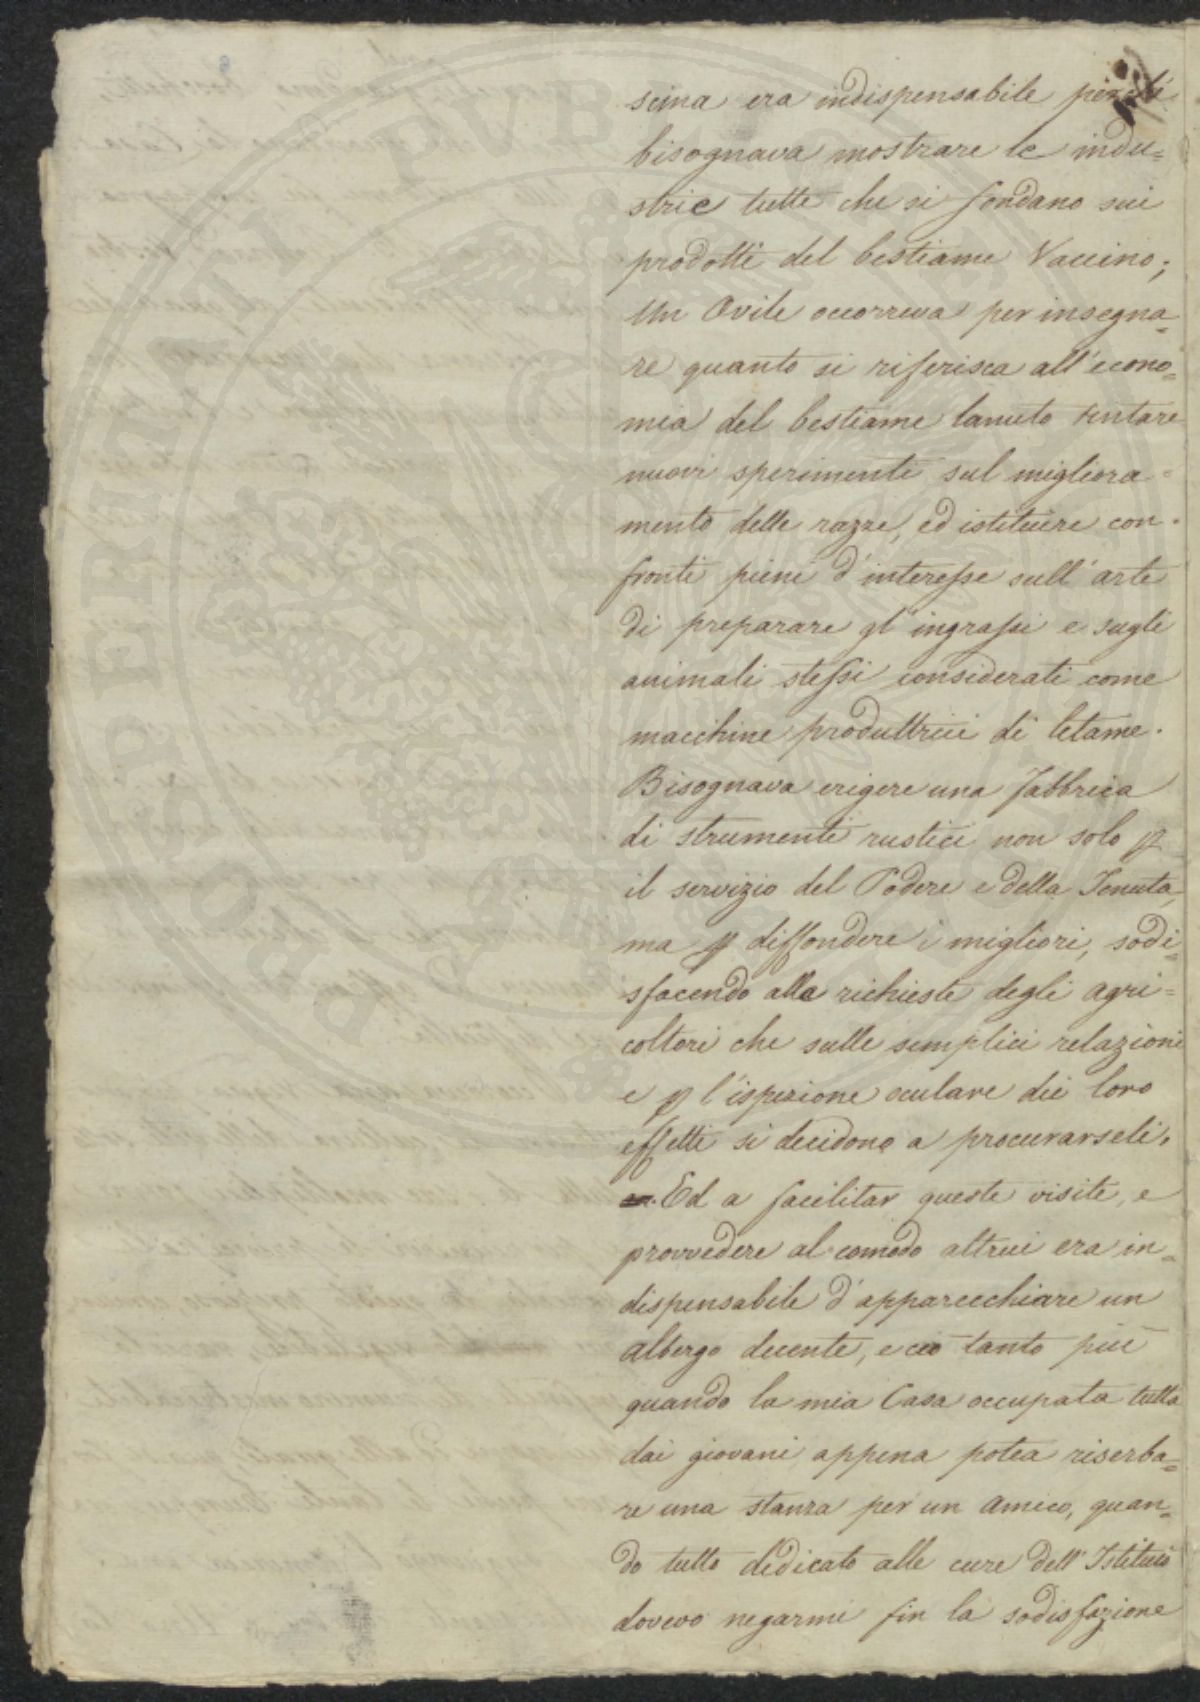 scina era indispensabile perchè
bisognava mostrare le indu=
strie tutte che si fondano sui
prodotti del bestiame Vaccino;
Un Ovile occorreva per insegna=
re quanto si riferisca all'econo=
mia del bestiame lanuto tentare
nuovi sperimenti sul migliora=
mento delle razze, ed istituire con=
fronti pieni d'interesse sull'arte
di preparare gl'ingrassi e sugli
animali stessi considerati come
macchine produttrici di letame.
Bisognava erigere una fabbrica
di strumenti rustici non solo p
il servizio del Podere e della Tenuta,
ma p diffondere i migliori, sodi=
sfacendo alla richieste degli agri=
coltori che sulle semplici relazioni
e p l'ispezione oculare dei loro
effetti si decidono a procurarseli.
Ed a facilitar queste visite, e
provvedere al comodo altrui era in=
dispensabile d'apparecchiare un
albergo decente, e ciò tanto più
quando la mia Casa occupata tutta
dai giovani appena potea riserba=
re una stanza per un amico, quan=
do tutto dedicato alle cure dell'Istituto
dovevo negarmi fin la sodisfazione